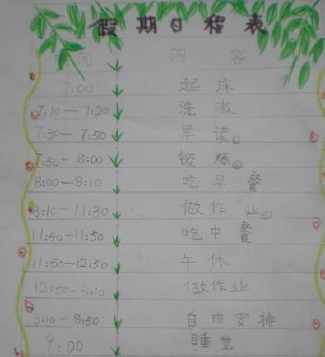 假期日程表
内 容
7:00 起床
7:10—7:20 洗漱
7:30—7:50 早读
7:50—8:00 锻炼
8:00—8:10 吃早餐
8:10—11:30 做作业
11:40—11:50 吃中餐
11:50—12:50 午休
做作业
自由安排
9:00 睡觉